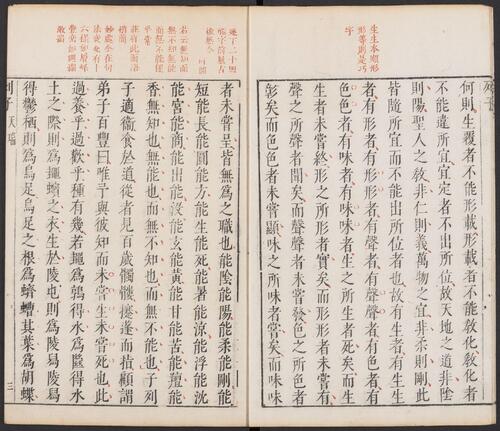 生生本順形
形等則是巧
字
何則生覆者不能形載形載者不能敎化敎化者
不能違所宜宜定者不出所位故天地之道非陰
則陽聖人之敎非仁則義萬物之宜非柔則剛此
皆隨所宜而不能出所位者也故有生者有生生
者有形者有形形者有聲者有聲聲者有色者有
色色者有味者有味味者生之所生者死矣而生
生者未嘗終形之所形者實矣而形形者未嘗有
聲之所聲者聞矣而聲聲者未嘗發色之所色者
彰矣而色色者未嘗顯味之所味者嘗矣而味味
能字前無古
若云無知而
無不知無能
而無不能便
平常
妙處全在句
者未嘗呈皆無爲之職也能陰能陽能柔能剛能
短能長能圓能方能生能死能暑能涼能浮能沈
能宮能商能出能沒能玄能黃能甘能苦能羶能
香無知也無能也而無不知也而無不能也子列
子適衞食於道從者見百歲髑髏攓蓬而指顧謂
弟子百豐曰唯予與彼知而未嘗生未嘗死也此
過養乎過歡乎種有幾若蠅爲鶉得水爲㡭得水
土之際則爲蠅蠙之衣生於陵屯則爲陵舄陵舄
得鬱栖則爲烏足烏足之根爲蠐螬其葉爲胡蝶
列子 天瑞 三